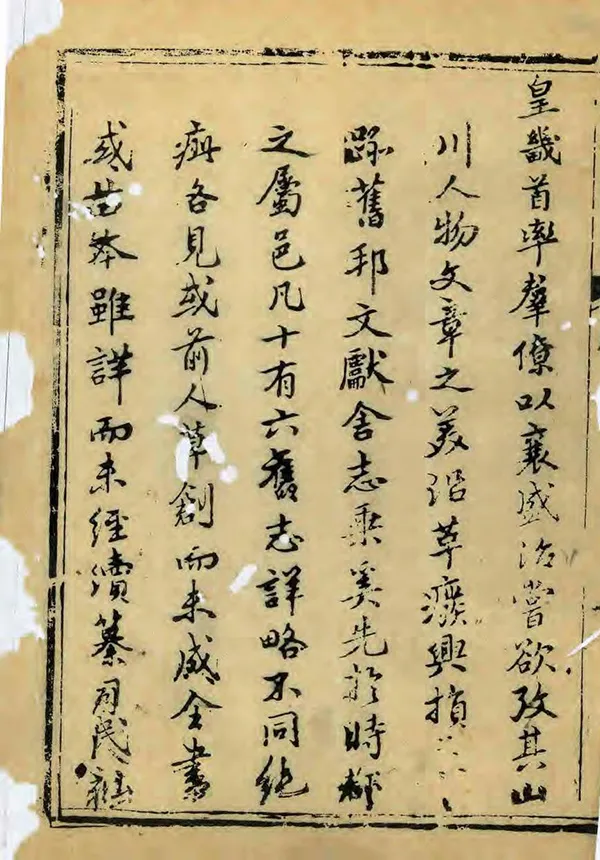 皇畿首率羣僚以襄盛治嘗欲攷其山
川人物文章之美沿革廢興損
跡舊邦文獻舍志乘奚先於時
之屬邑凡十有六舊志詳略不同純
疵各見或前人草創而未成全書
或昔本雖詳而未經續纂